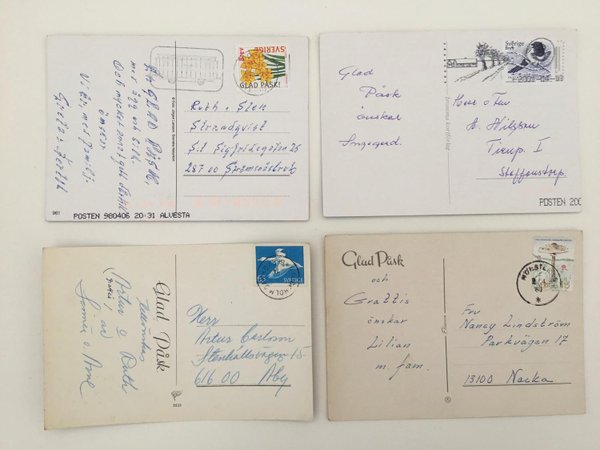 En GLAD PÅSK,
med ägg och sill.
Och mycket annat gott därtill
önskar
Vi är med familj
SVERIGE
GLAD PÅSK!
Ruth o Sten
Strandqvist
S:t Sigfridsgatan 26
287 00 Strömsnäsbruk
961
POSTEN 980406 20·31 ALVESTA
Glad
Påsk
önskar
Ingegerd.
Sverige
Brev
Herr o Fru
A. Nilsson
Tirup. I
Staffanstorp.
POSTEN 200
Glad Påsk
tillönskas
Artur o Ruth
av
o Arne
65
SVERIGE
Herr
Artur Castrom
Stenhällsvägen 15
616 00 Åby
Glad Påsk
och
Grattis
önskar
Lilian
m. fam.
Fru
Nancy Lindström
Parkvägen 17
13100 Nacka